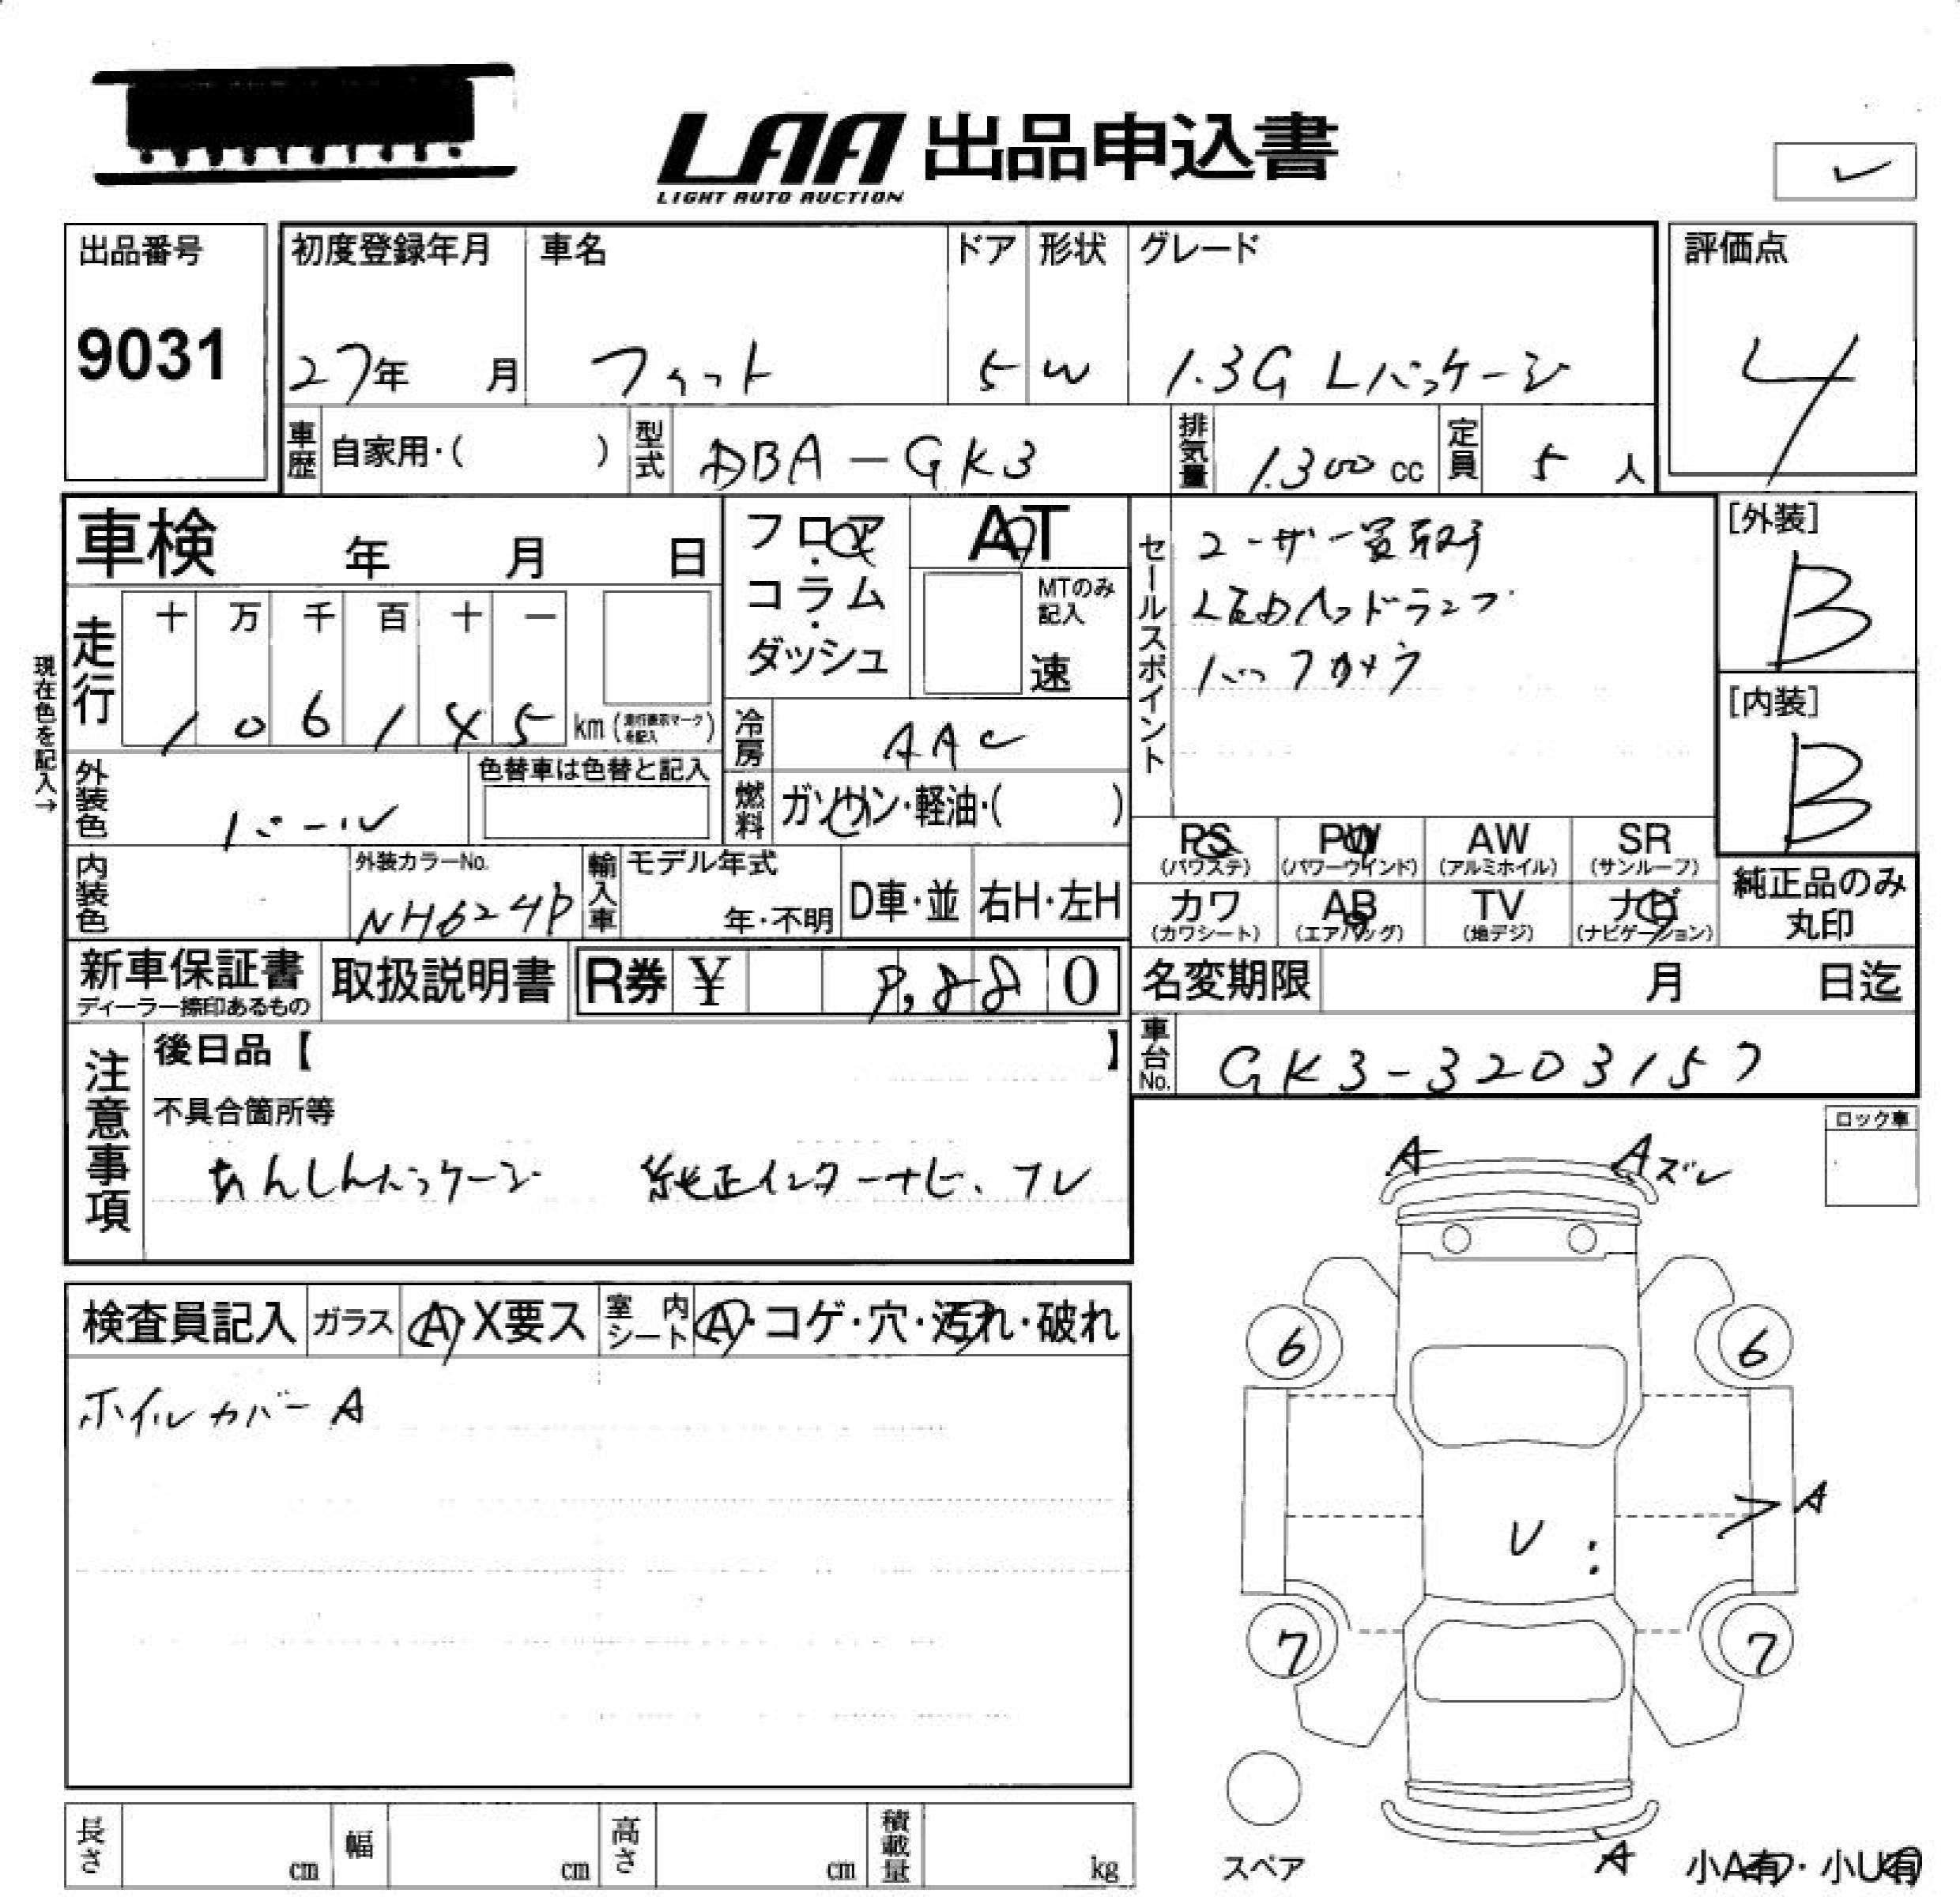 LAA 出品申込書
LIGHT AUTO AUCTION
出品番号
9031
初度登録年月 車名 ドア 形状 グレード
27年 月 フィット 5 W 1.3G Lパッケージ
評価点
4
車歴 自家用・( ) 型式 DBA-GK3 排気量 1300 cc 定員 5 人
車検 年 月 日
フロア・コラム・ダッシュ
AT
MTのみ記入
速
セールスポイント
ユーザー買取
LEDヘッドランプ
バックカメラ
[外装]
B
[内装]
B
現在色を記入→
走行 十 万 千 百 十 一
1 0 6 1 4 5 km (走行表示マークを記入)
冷房 AAC
燃料 ガソリン・軽油・( )
外装色 パール 色替車は色替と記入
内装色 外装カラーNo. NH624P 輸入車 モデル年式 年・不明 D車・並 右H・左H
PS (パワステ) PW (パワーウインド) AW (アルミホイル) SR (サンルーフ)
カワ (カワシート) AB (エアバッグ) TV (地デジ) ナビ (ナビゲーション)
純正品のみ丸印
新車保証書 ディーラー捺印あるもの 取扱説明書 R券 ¥ 9,880
名変期限 月 日迄
車台No. GK3-3203157
注意事項
後日品【 】
不具合箇所等
あんしんパッケージ 純正インターナビ、フレ
ロック車
A Aズレ
検査員記入 ガラス A・X要ス 室内シート A・コゲ・穴・汚れ・破れ
ホイルカバーA
6 6
A
U :
7 7
スペア
A
小A有・小U有
長さ cm 幅 cm 高さ cm 積載量 kg